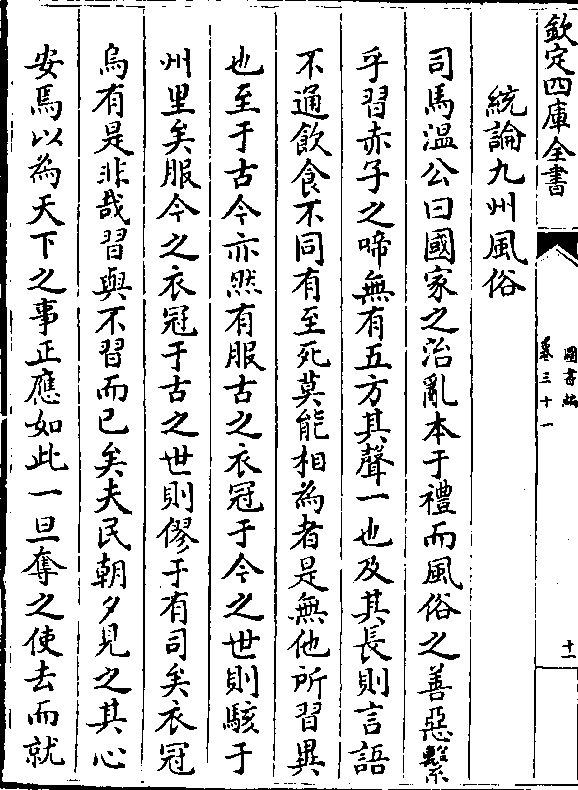 欽定四庫全書
圖書編
卷三十一
十一
統論九州風俗
司馬溫公曰國家之治亂本于禮而風俗之善惡繫
乎習赤子之啼無有五方其聲一也及其長則言語
不通飲食不同有至死莫能相為者是無他所習異
也至于古今亦然有服古之衣冠于今之世則駭于
州里矣服今之衣冠于古之世則僇于有司矣衣冠
烏有是非哉習與不習而已矣夫民朝夕見之其心
安焉以為天下之事正應如此一旦奪之使去而就